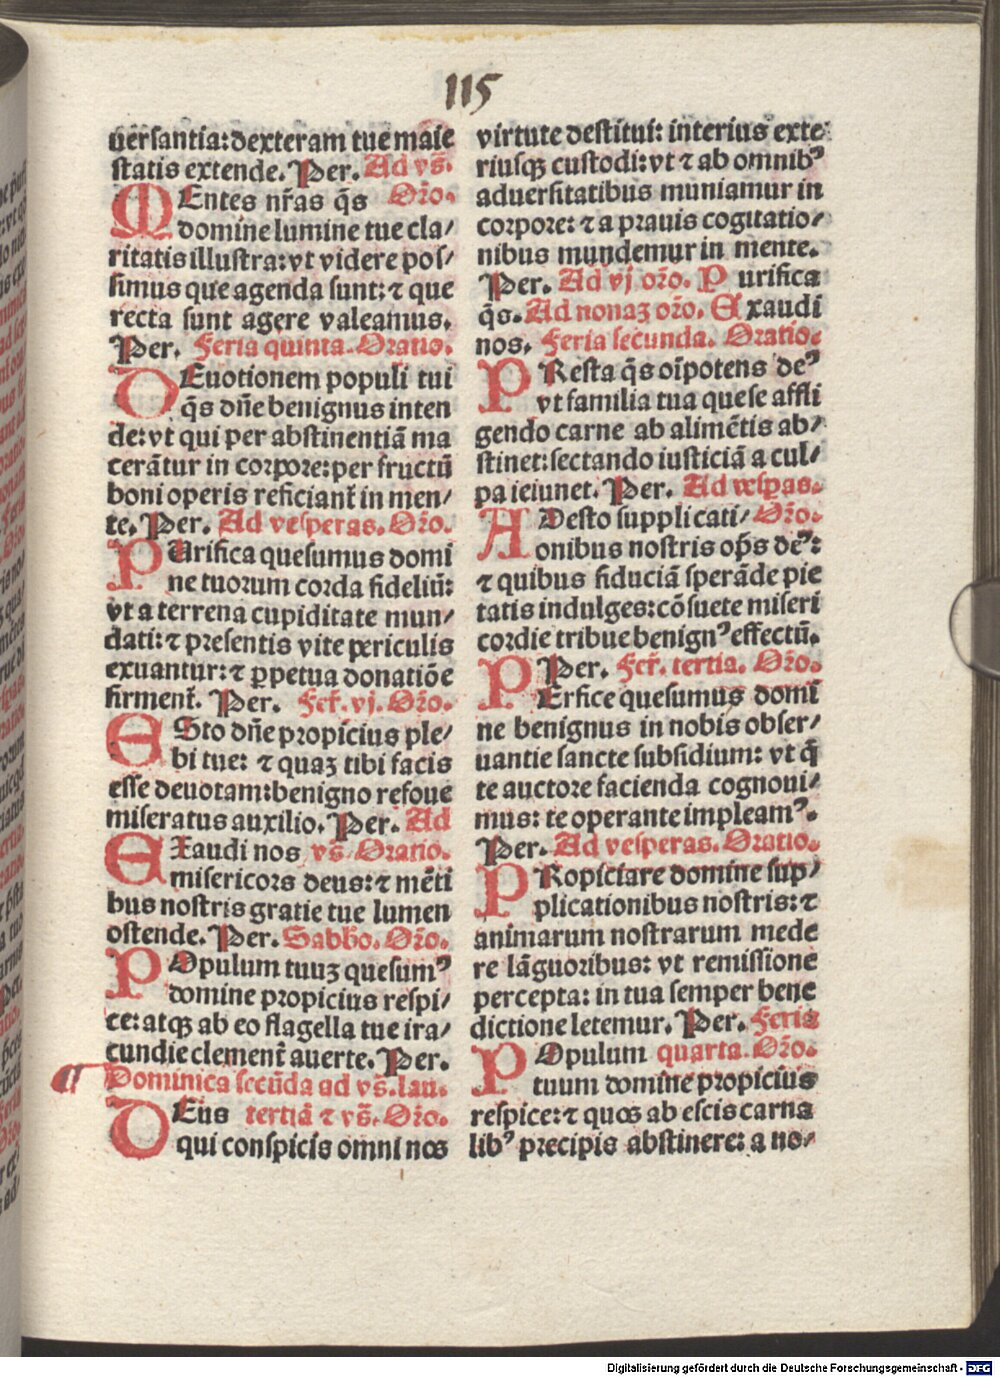 115
uersantia: dexteram tue maie
statis extende. Per. Ad vs̄.
MEntes nr̄as q̄s Or̄o.
domine lumine tue cla/
ritatis illustra: vt videre pos/
simus que agenda sunt: ⁊ que
recta sunt agere valeamus.
Per. Feria quinta. Oratio.
DEuotionem populi tui
q̄s dn̄e benignus inten
de: vt qui per abstinentiā ma
cerātur in corpore: per fructū
boni operis reficiant᷑ in men/
te. Per. Ad vesperas. Or̄o.
PUrifica quesumus domi
ne tuorum corda fideliū:
vt a terrena cupiditate mun/
dati: ⁊ presentis vite periculis
exuantur: ⁊ ꝑpetua donatiōe
firment᷑. Per. Fer̄. vj. Or̄o.
ESto dn̄e propicius ple/
bi tue: ⁊ quaꝫ tibi facis
esse deuotam: benigno refoue
miseratus auxilio. Per. Ad
EXaudi nos vs̄. Oratio.
misericors deus: ⁊ mēti
bus nostris gratie tue lumen
ostende. Per. Sabbo. Or̄o.
POpulum tuuꝫ quesumꝰ
domine propicius respi/
ce: atqꝫ ab eo flagella tue ira/
cundie clement᷑ auerte. Per.
Dominica secūda ad vs̄. lau.
DEus tertiā ⁊ vs̄. Or̄o.
qui conspicis omni nos
virtute destitui: interius exte/
riusqꝫ custodi: vt ⁊ ab omnibꝰ
aduersitatibus muniamur in
corpore: ⁊ a prauis cogitatio/
nibus mundemur in mente.
Per. Ad vj or̄o. Purifica
q̄s. Ad nonaꝫ or̄o. Exaudi
nos. Feria secunda. Oratio.
PResta q̄s oīpotens deꝰ
vt familia tua que se affli
gendo carne ab alimētis ab/
stinet: sectando iusticiā a cul/
pa ieiunet. Per. Ad vesꝑas.
ADesto supplicati/ Or̄o.
onibus nostris op̄s deꝰ:
⁊ quibus fiduciā sperāde pie
tatis indulges: cōsuete miseri
cordie tribue benignꝰ effectū.
Per. Fer̄. tertia. Or̄o.
PErfice quesumus domi
ne benignus in nobis obser/
uantie sancte subsidium: vt q̄
te auctore facienda cognoui/
mus: te operante impleamꝰ.
Per. Ad vesperas. Oratio.
PRopiciare domine sup/
plicationibus nostris: ⁊
animarum nostrarum mede
re lāguoribus: vt remissione
percepta: in tua semper bene
dictione letemur. Per. Feria
POpulum quarta. Or̄o.
tuum domine propicius
respice: ⁊ quos ab escis carna
libꝰ precipis abstinere: a no/
Digitalisierung gefördert durch die Deutsche Forschungsgemeinschaft - DFG